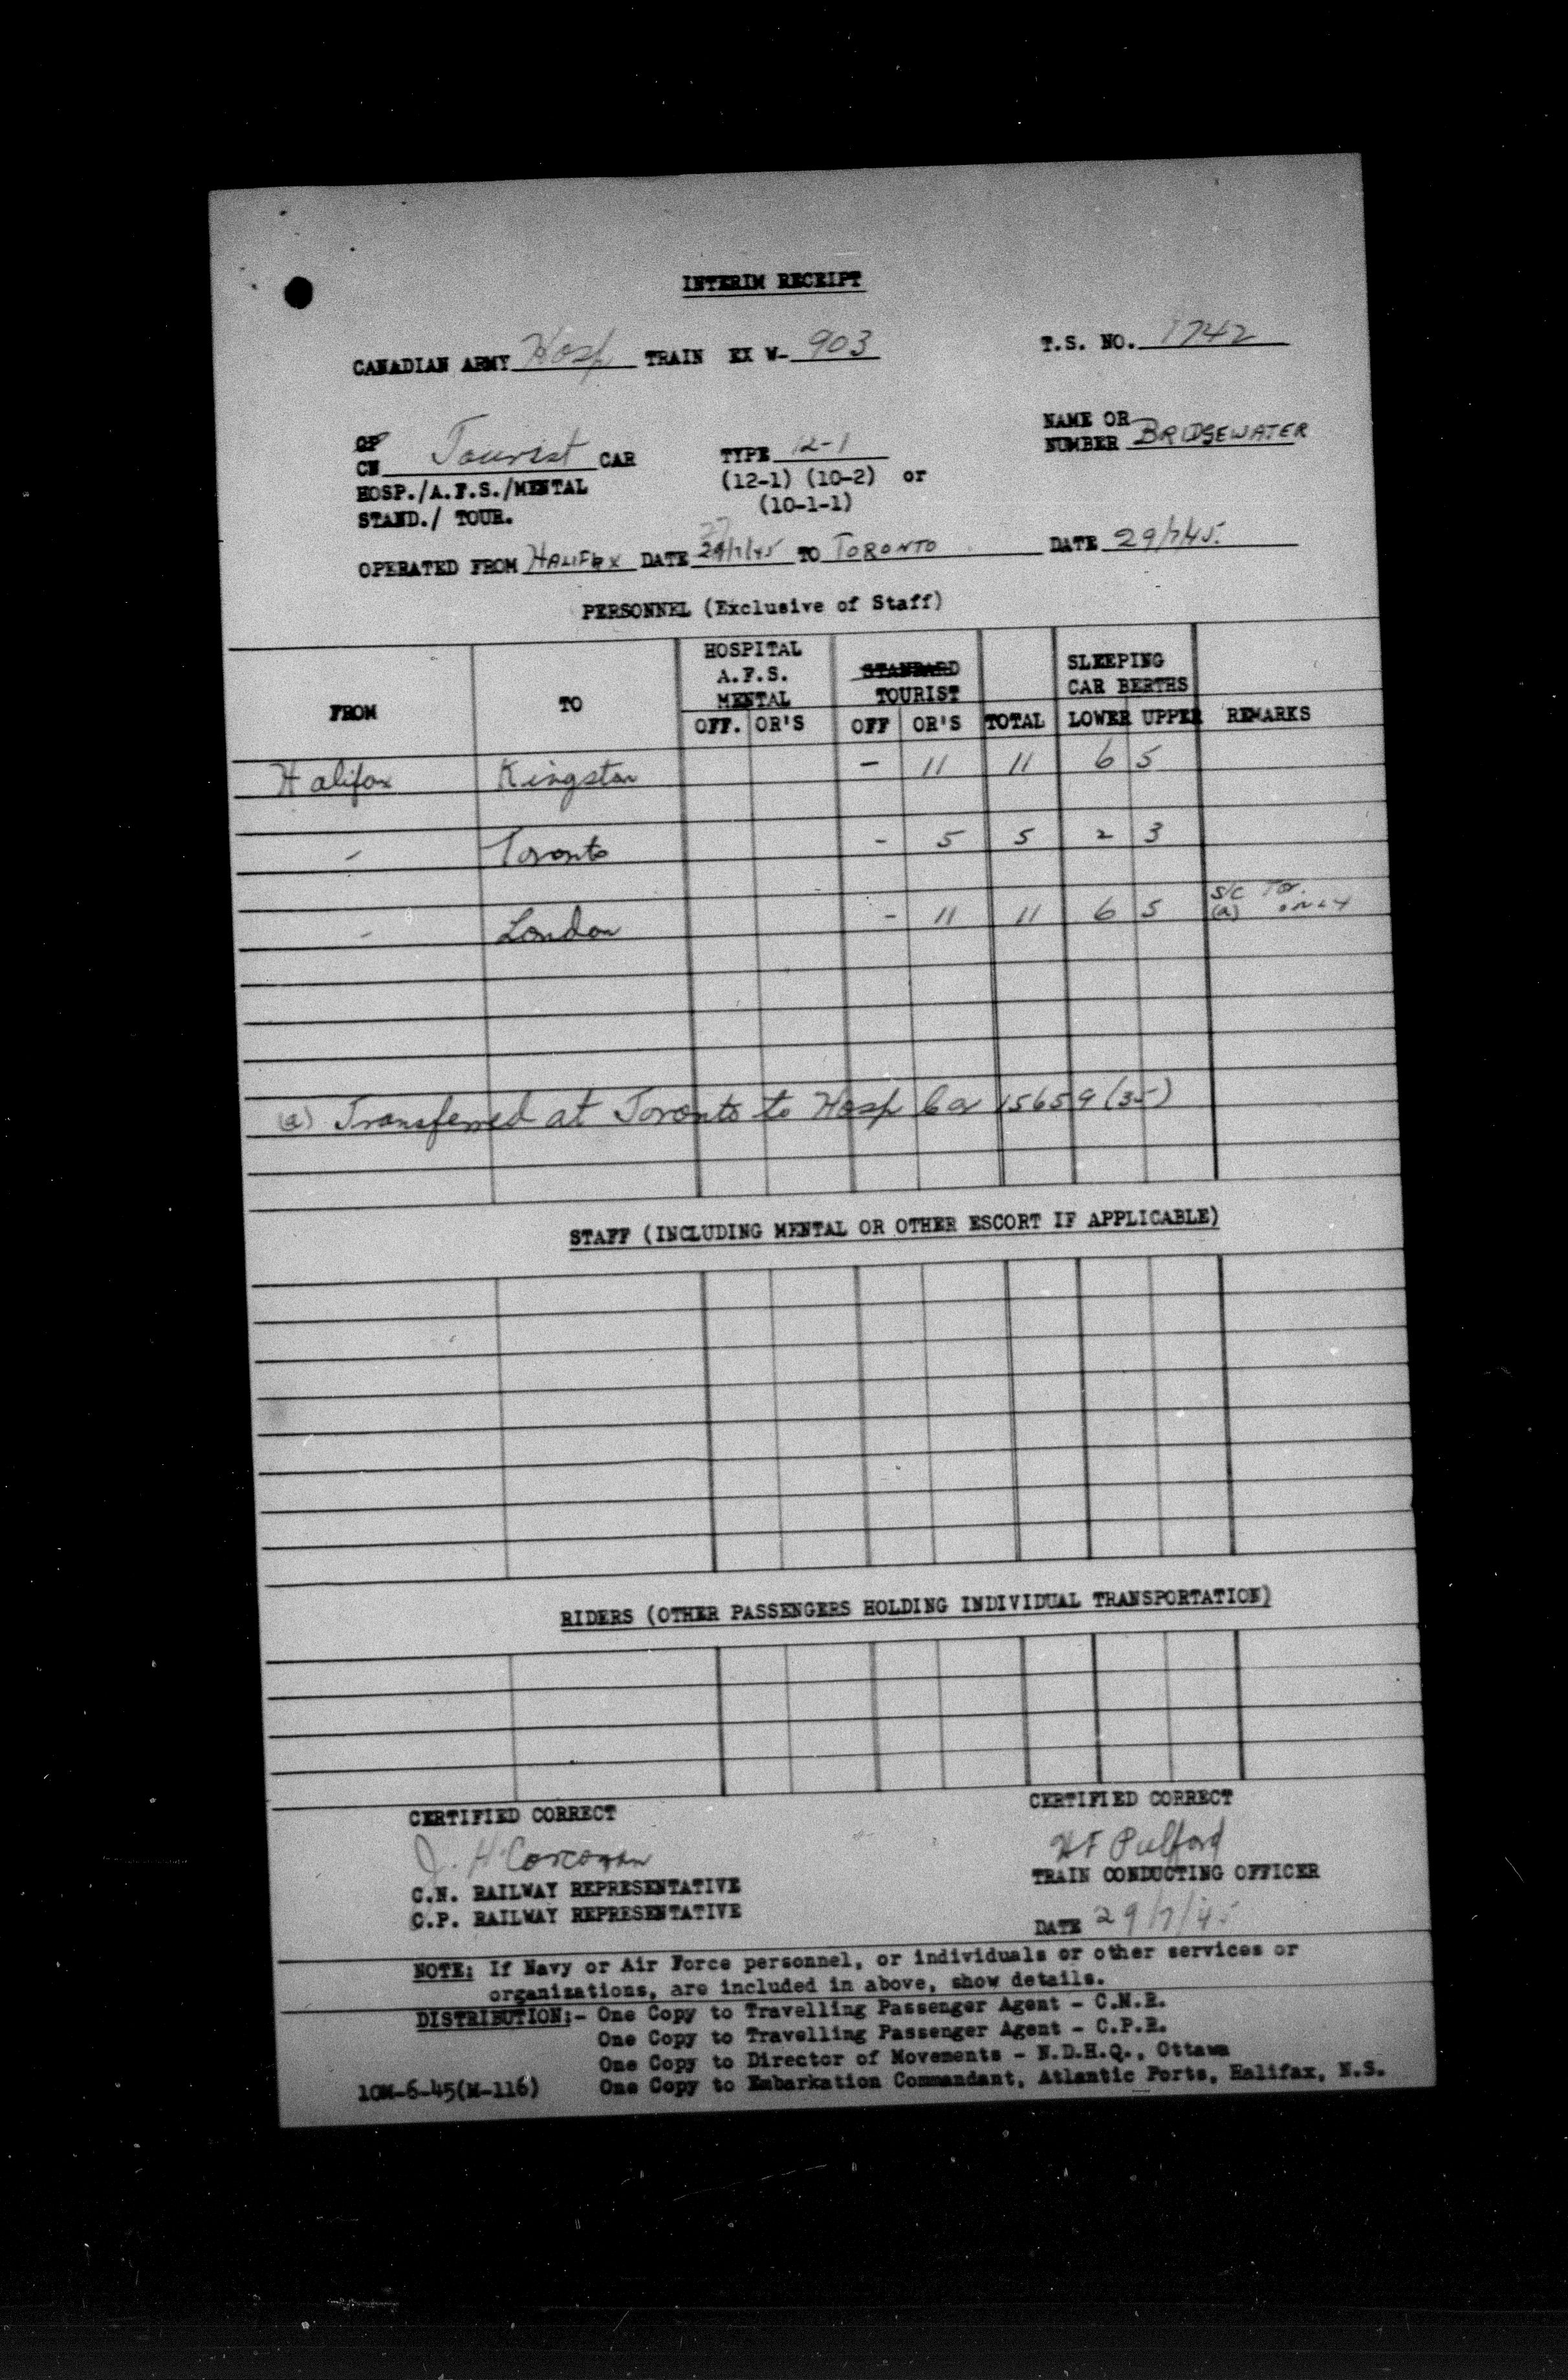 INTERIM RECEIPT
CANADIAN ARMY Hosp TRAIN EX W- 903 T.S. NO. 1742
CP
CN Tourist CAR TYPE 12-1 NAME OR NUMBER BRIDGEWATER
HOSP./A.F.S./MENTAL (12-1) (10-2) or
STAND./ TOUR. (10-1-1)
OPERATED FROM HALIFAX DATE 29/7/45 TO TORONTO DATE 29/7/45.
PERSONNEL (Exclusive of Staff)
FROM TO HOSPITAL A.F.S. MENTAL STANDARD TOURIST SLEEPING CAR BERTHS
OFF. OR'S OFF OR'S TOTAL LOWER UPPER REMARKS
Halifax Kingston - 11 11 6 5
- Toronto - 5 5 2 3
- London - 11 11 6 5 S/C Tor. (a) only
(a) Transferred at Toronto to Hosp Car 15659 (35)
STAFF (INCLUDING MENTAL OR OTHER ESCORT IF APPLICABLE)
RIDERS (OTHER PASSENGERS HOLDING INDIVIDUAL TRANSPORTATION)
CERTIFIED CORRECT CERTIFIED CORRECT
J. H. Corcoran HF Pulford
C.N. RAILWAY REPRESENTATIVE TRAIN CONDUCTING OFFICER
C.P. RAILWAY REPRESENTATIVE DATE 29/7/45
NOTE: If Navy or Air Force personnel, or individuals or other services or
organizations, are included in above, show details.
DISTRIBUTION:- One Copy to Travelling Passenger Agent - C.N.R.
One Copy to Travelling Passenger Agent - C.P.R.
One Copy to Director of Movements - N.D.H.Q., Ottawa
10M-6-45(M-116) One Copy to Embarkation Commandant, Atlantic Ports, Halifax, N.S.